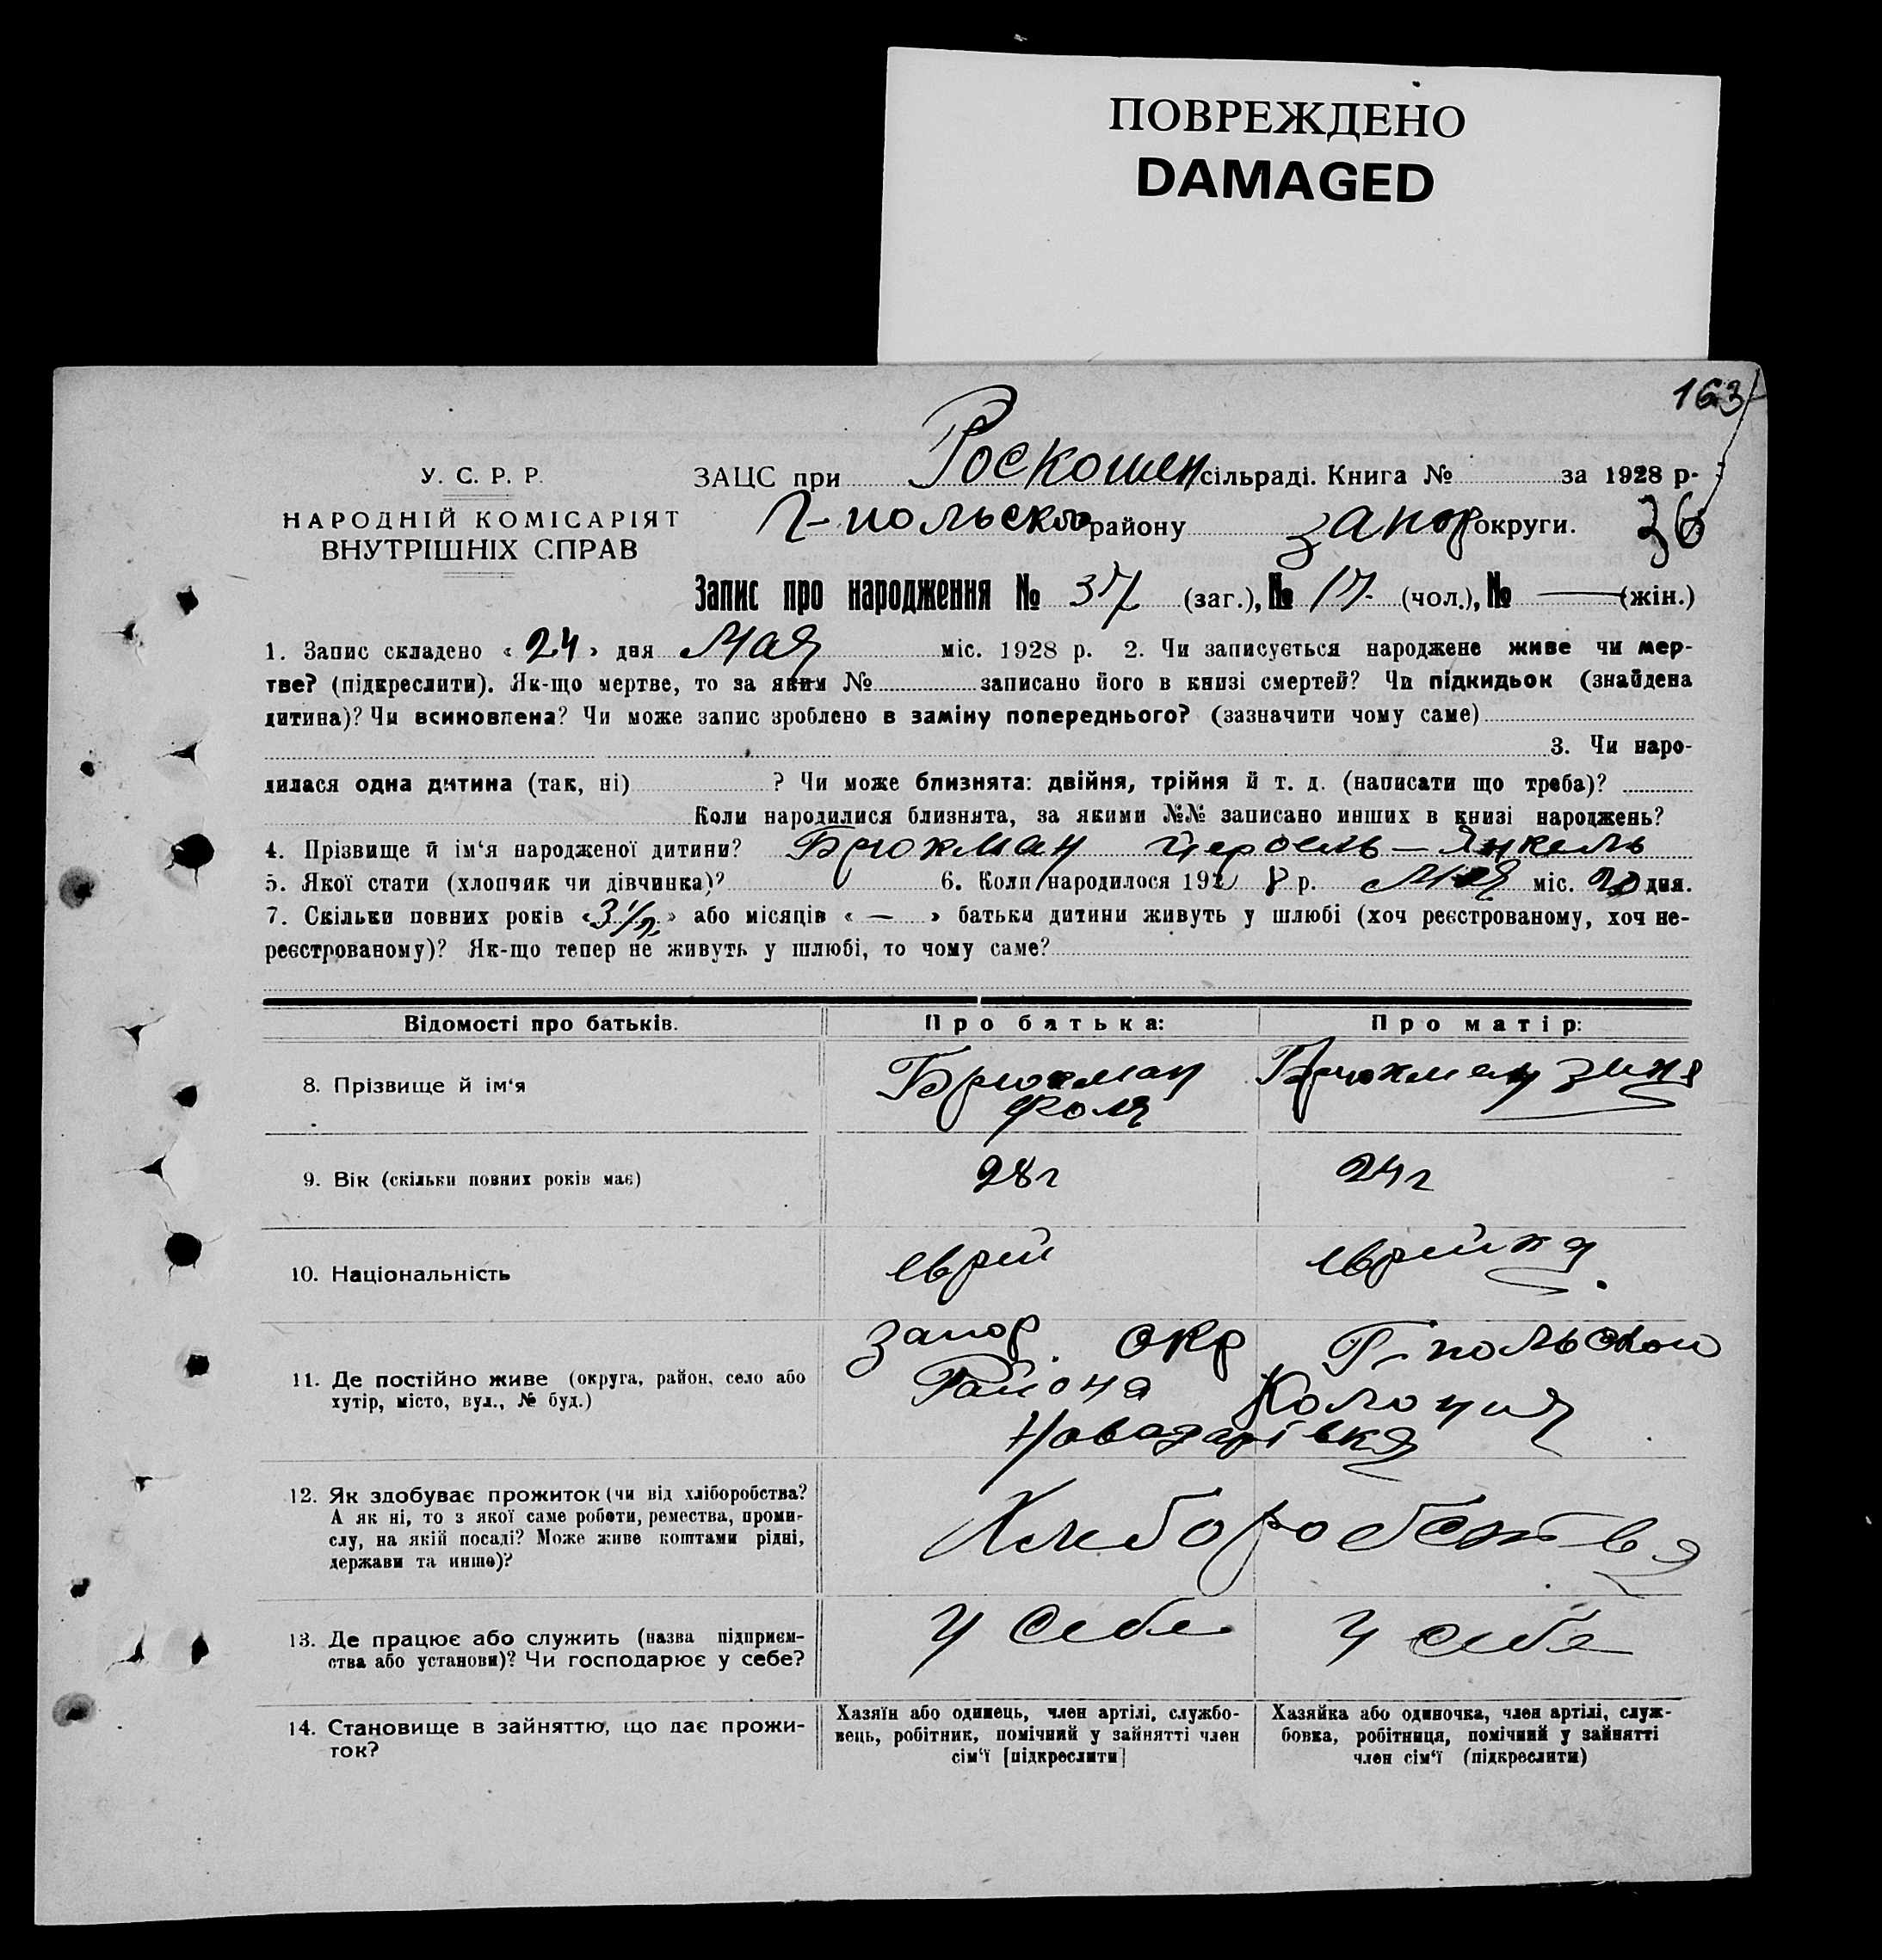 ПОВРЕЖДЕНО
DAMAGED
163
У. С. Р. Р.
НАРОДНІЙ КОМІСАРІЯТ
ВНУТРІШНІХ СПРАВ
ЗАЦС при Роскошен сільраді. Книга № за 1928 р-
Г-польского району Запор округи. 36
Запис про народження № 37 (заг.), № 17. (чол.), № — (жін.)
1. Запис складено « 24 » дня Мая міс. 1928 р. 2. Чи записується народжене живе чи мер-
тве? (підкреслити). Як-що мертве, то за яким № записано його в книзі смертей? Чи підкидьок (знайдена
дитина)? Чи всиновлена? Чи може запис зроблено в заміну попереднього? (зазначити чому саме)
3. Чи наро-
дилася одна дитина (так, ні) ? Чи може близнята: двійня, трійня й т. д. (написати що треба)?
Коли народилися близнята, за якими №№ записано инших в книзі народжень?
4. Прізвище й ім‘я народженої дитини? Брюкман - Янкель
5. Якої стати (хлопчик чи дівчинка)? 6. Коли народилося 192 8 р. Мая міс. 20 дня.
7. Скільки повних років « 3 1/2 » або місяців « — » батьки дитини живуть у шлюбі (хоч реєстрованому, хоч не-
реєстрованому)? Як-що тепер не живуть у шлюбі, то чому саме?
Відомості про батьків. Про батька: Про матір:
8. Прізвище й ім‘я Брюкман Брюкман Зиня
Фоля
9. Вік (скільки повних років має) 28г 24г
10. Національність еврей еврейка
Запор. окр Г-польской
11. Де постійно живе (округа, район, село або Района Колония
хутір, місто, вул., № буд.) Новадарівка
12. Як здобуває прожиток (чи від хліборобства? Хлеборобства
А як ні, то з якої саме роботи, ремества, проми-
слу, на якій посаді? Може живе коштами рідні,
держави та инше)?
13. Де працює або служить (назва підприєм- У себе У себе
ства або установи)? Чи господарює у себе?
14. Становище в зайняттю, що дає прожи-
ток?
Хазяїн або одинець, член артілі, службо-
вець, робітник, помічний у зайнятті член
сім‘ї [підкреслити]
Хазяйка або одиночка, член артілі, служ-
бовка, робітниця, помічний у зайнятті
член сім‘ї (підкреслити)